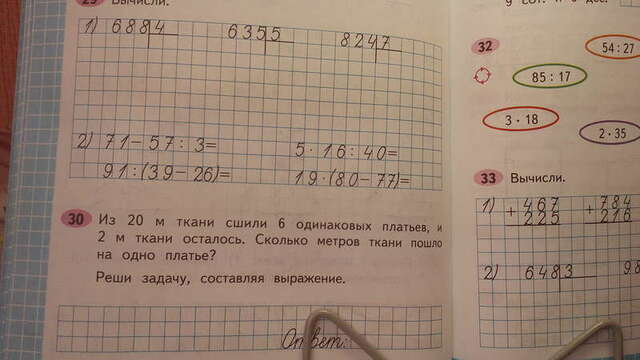 29 Вычисли.
1) 688|4 635|5 824|7
2) 71-57:3= 5·16:40=
91:(39-26)= 19·(80-77)=
30 Из 20 м ткани сшили 6 одинаковых платьев, и
2 м ткани осталось. Сколько метров ткани пошло
на одно платье?
Реши задачу, составляя выражение.
Ответ:
32
54:27
85:17
3·18
2·35
33 Вычисли.
1) + 467 + 784
225 216
2) 648|3 98